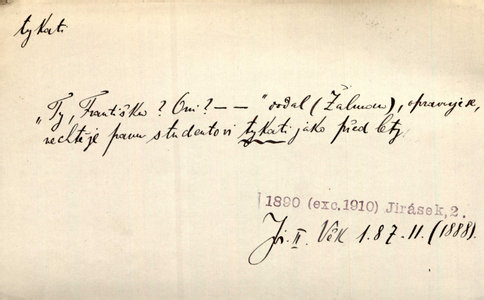 tykati
„Ty, Františku? Oni? — — “ dodal (Žalman), opravuje se,
nechtěje panu studentovi tykati jako před lety.
1890 (exc.1910) Jirásek, 2.
Jir. II. Věk 1.87.11. (1888).